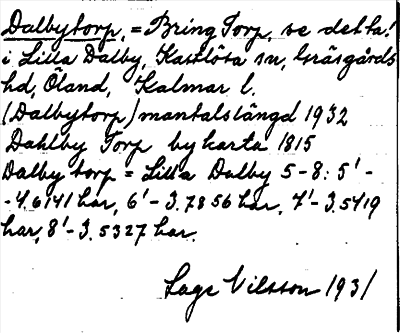 Dalbytorp, = Bring Torp, se detta!
i Lilla Dalby, Kastlösa sn, Gräsgårds
hd, Öland, Kalmar l.
(Dalbytorp) mantalslängd 1932
Dahlby Torp by karta 1815
Dalby torp = Lilla Dalby 5-8: 5¹ -
- 4.6141 har, 6¹ - 3.7856 har, 7¹ - 3.5419
har, 8¹ - 3.5327 har.
Lage Nilsson 1931